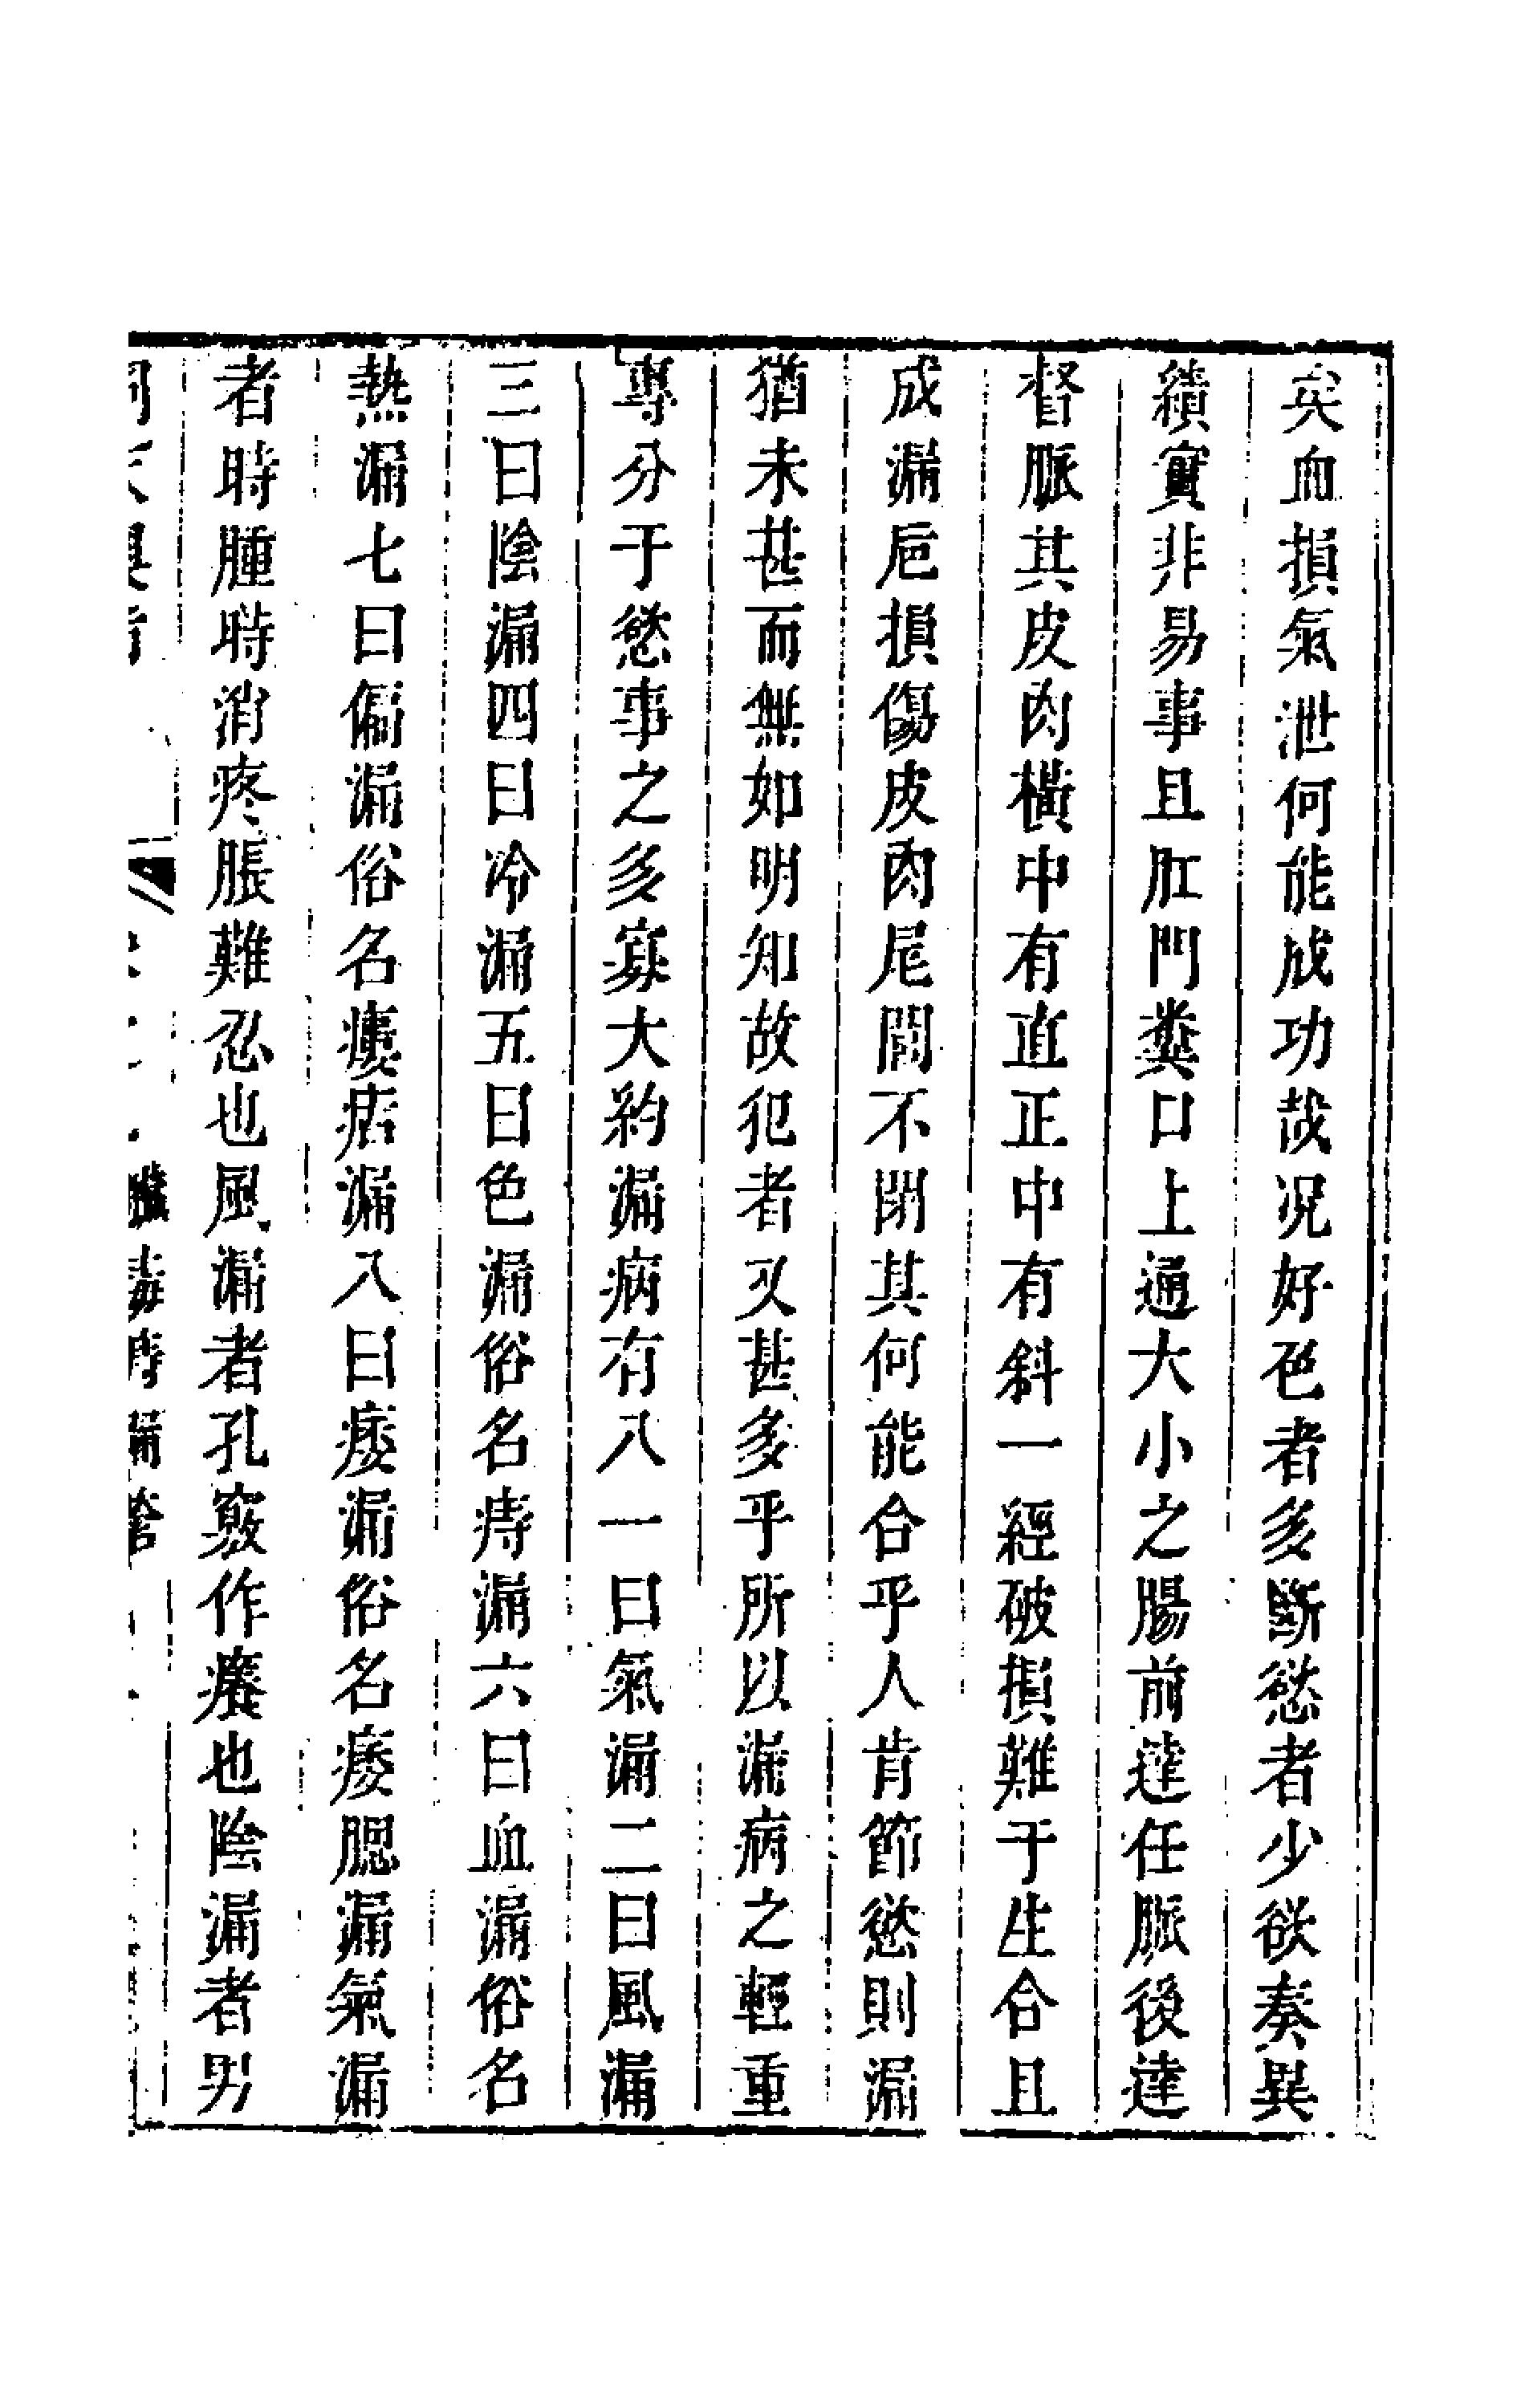 矣血損氣泄何能成功哉况好色者多斷慾者少欲奏異
績實非易事且肛門糞口上通大小之腸前達任脈後達
督脈其皮肉橫中有直正中有斜一經破損難于生合且
成漏巵損傷皮肉尾閭不閉其何能合乎人肯節慾則漏
猶未甚而無如明知故犯者又甚多乎所以漏病之輕重
專分于慾事之多寡大約漏病有八一曰氣漏二曰風漏
三曰陰漏四曰冷漏五曰色漏俗名痔漏六曰血漏俗名
熱漏七曰偏漏俗名瘻㾷漏八曰痿漏俗名痿腮漏氣漏
者時腫時消疼脹難忍也風漏者孔竅作癢也陰漏者男
漏